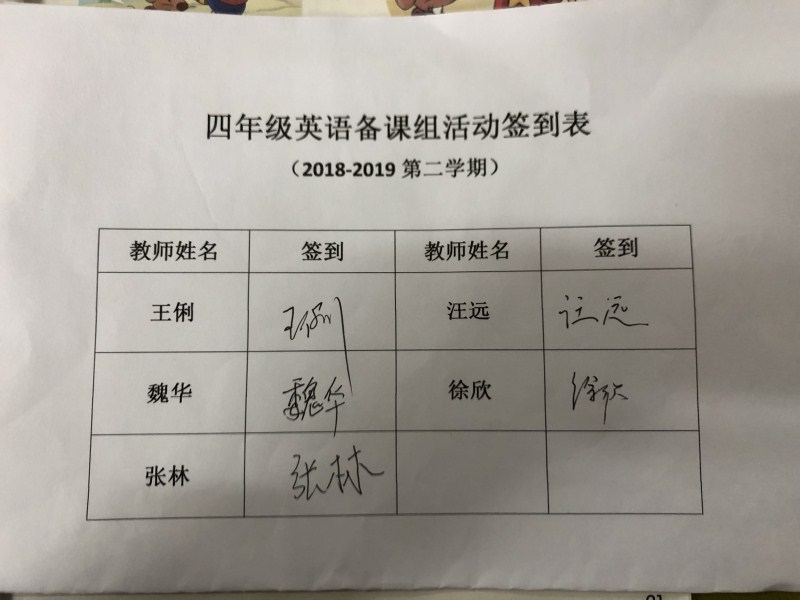 四年级英语备课组活动签到表
（2018-2019 第二学期）
教师姓名 签到 教师姓名 签到
王俐 王俐 汪远 汪远
魏华 魏华 徐欣 徐欣
张林 张林